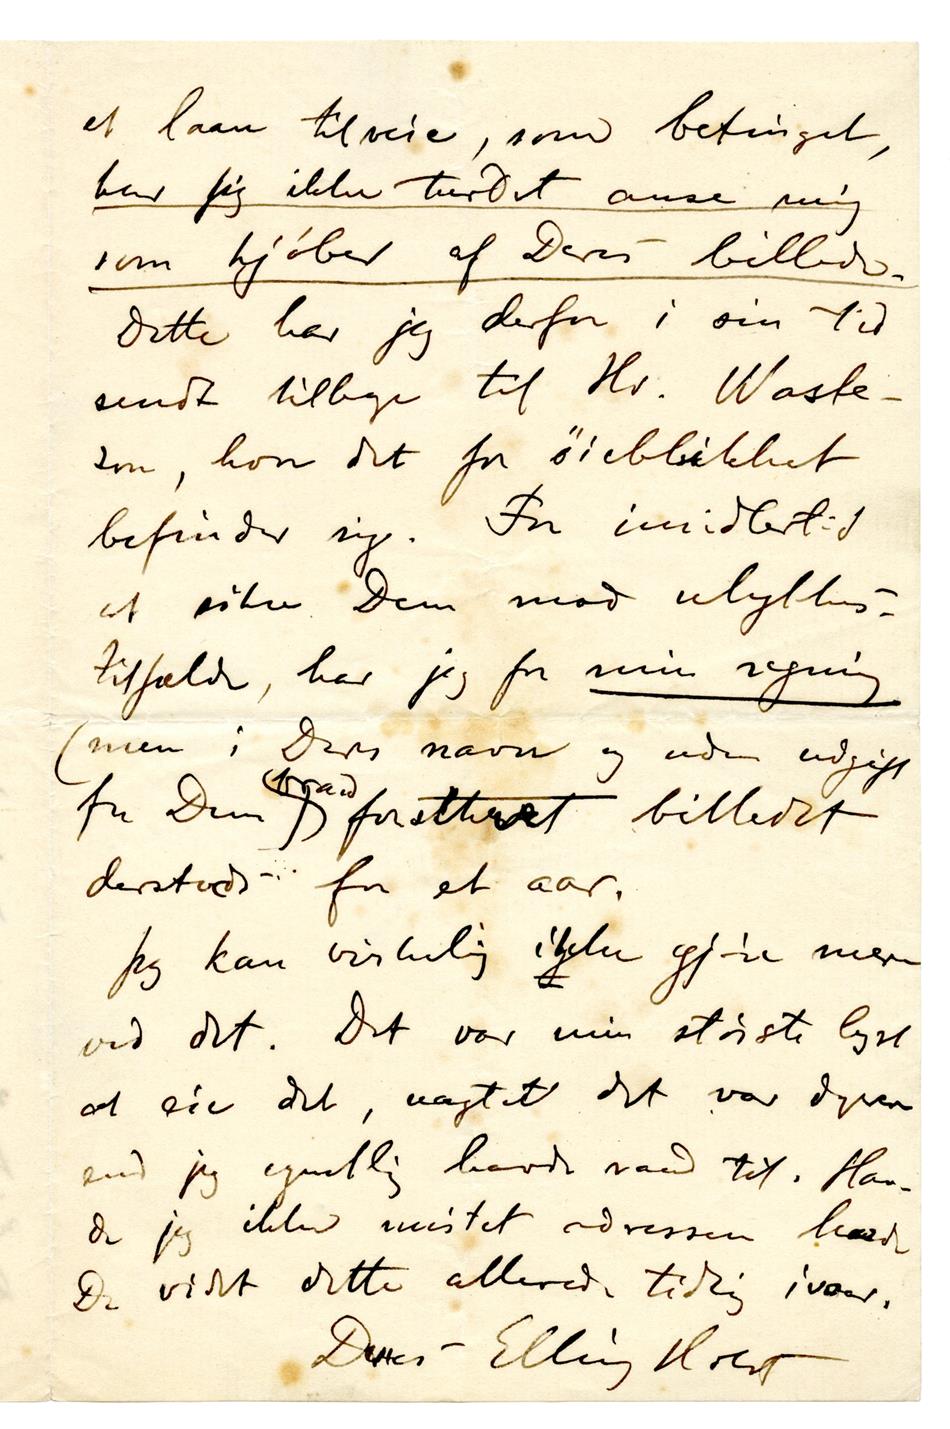 et laan tilveie, som betinget,
har jeg ikke turdet anse mig
som kjöber af Deres billede.
Dette har jeg derfor i sin tid
sendt tilbage til Hr. Waste-
son, hvor det for öieblikket
befinder sig. For imidlertid
at sikre Dem mod ulykkes-
tilfælde, har jeg for min regning
(men i Deres navn og uden udgift
for Dem) (brand) forsikret billedet
dersteds for et aar.
Jeg kan virkelig ikke gjöre mere
ved det. Det var min störste lyst
at eie det, uagtet det var dyrere
end jeg egentlig havde raad til. Hav-
de jeg ikke mistet adressen havde
De vidst dette allerede tidlig ivaar.
Deres Elling Holst